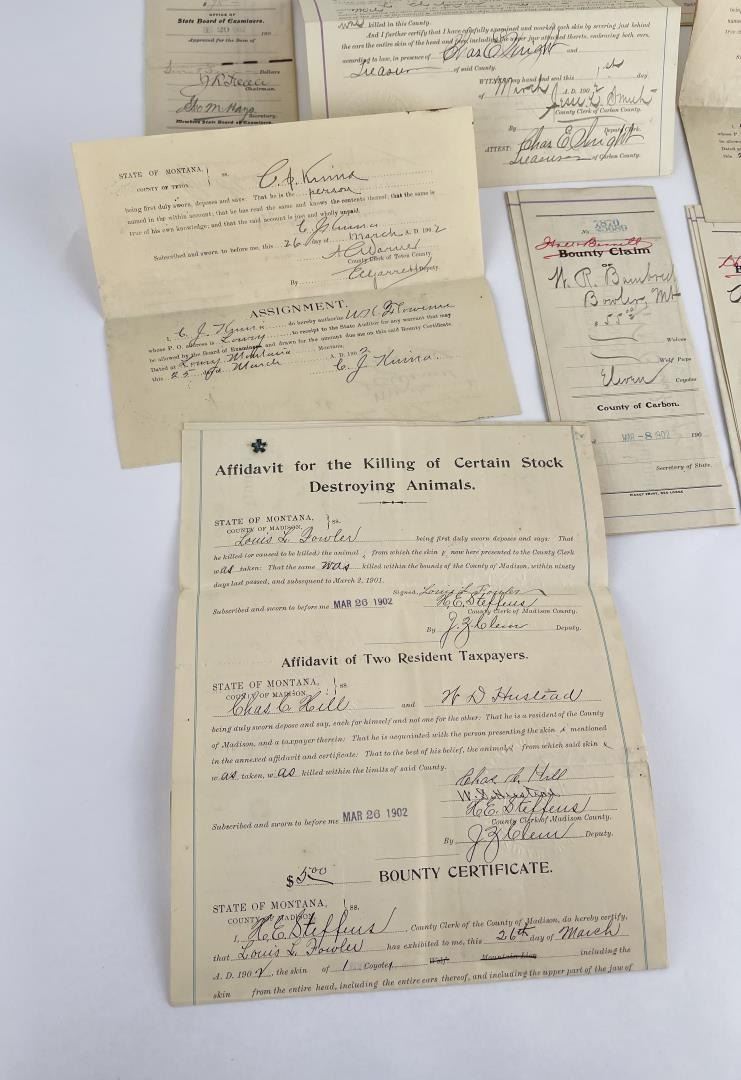 OFFICE OF
State Board of Examiners.
20 1902
Approved for the Sum of
Dollars
Chairman.
Geo M Hays
Secretary.
Members State Board of Examiners.
killed in this County.
And I further certify that I have carefully examined and marked each skin by severing just behind
the ears the entire skin of the head and face, including the upper jaw attached thereto, embracing both ears,
according to law, in presence of Chas E Wright and
Treasurer of said County.
WITNESS my hand and seal this 1st day
of March A. D. 190
County Clerk of Carbon County.
By Deputy Clerk.
ATTEST: Chas E Wright
Treasurer of Carbon County.
STATE OF MONTANA, } ss.
COUNTY OF TETON
C. J. Kinna
being first duly sworn, deposes and says: That he is the person
named in the within account; that he has read the same and knows the contents thereof; that the same is
true of his own knowledge; and that the said account is just and wholly unpaid.
C J Kinna
Subscribed and sworn to before me, this 26 day of March A. D. 1902
A C Warner
County Clerk of Teton County
By Deputy.
ASSIGNMENT.
I, C. J. Kinna do hereby authorize
whose P. O. address is Lowry to receipt to the State Auditor for any warrant that may
be allowed by the Board of Examiners and drawn for the amount due me on this said Bounty Certificate.
Dated at Lowry Montana Montana,
this 25 day March A. D. 1902
C. J. Kinna.
No. 2870
Bounty Claim
OF
W. R.
Mt
$ 55.00
Wolves
Wolf Pups
Eleven Coyotes
County of Carbon.
MAR - 8 1902 190
Secretary of State.
Affidavit for the Killing of Certain Stock
Destroying Animals.
STATE OF MONTANA, } ss.
COUNTY OF MADISON,
Louis L. Fowler being first duly sworn deposes and says: That
he killed (or caused to be killed) the animal from which the skin now here presented to the County Clerk
was taken: That the same was killed within the bounds of the County of Madison, within ninety
days last passed, and subsequent to March 2, 1901.
Signed, Louis L Fowler
Subscribed and sworn to before me MAR 26 1902 H. E. Steffens
County Clerk of Madison County.
By J. Z. Clem Deputy.
Affidavit of Two Resident Taxpayers.
STATE OF MONTANA, } ss.
COUNTY OF MADISON,
Chas C Hill and W D Hustead
being duly sworn depose and say, each for himself and not one for the other: That he is a resident of the County
of Madison, and a taxpayer therein: That he is acquainted with the person presenting the skin mentioned
in the annexed affidavit and certificate: That to the best of his belief, the animal from which said skin
was taken, was killed within the limits of said County.
Chas C. Hill
W. D. Hustead
Subscribed and sworn to before me MAR 26 1902 H. E. Steffens
County Clerk of Madison County.
By J Z Clem Deputy.
$5.00 BOUNTY CERTIFICATE.
STATE OF MONTANA, } ss.
COUNTY OF MADISON
I, H. E. Steffens, County Clerk of the County of Madison, do hereby certify,
that Louis L Fowler has exhibited to me, this 26th day of March
A. D. 1902, the skin of 1 Coyote, Wolf Mountain Lion including the
skin from the entire head, including the entire ears thereof, and including the upper part of the jaw of